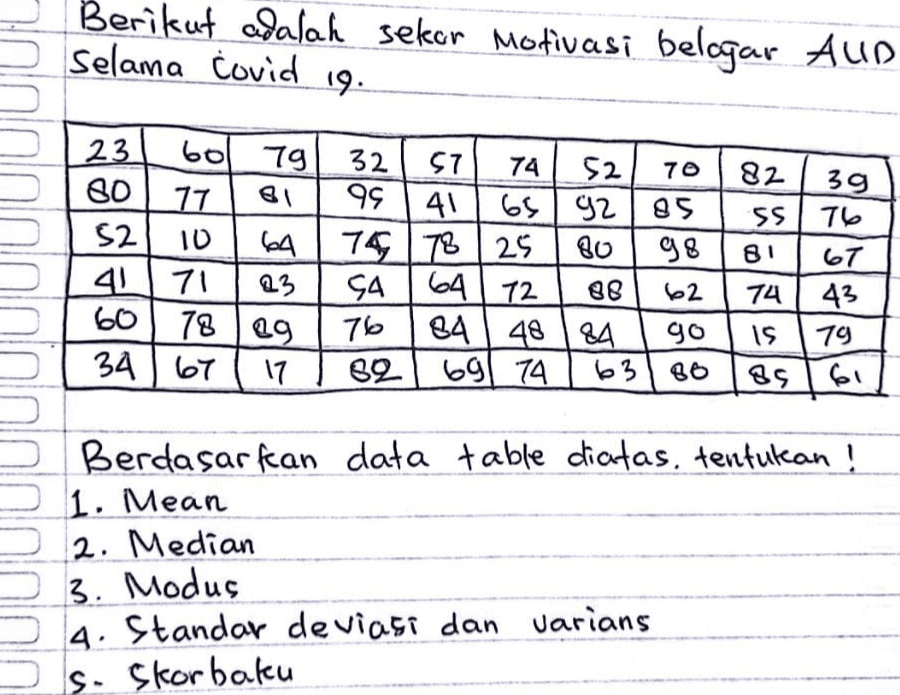 Berikut adalah sekor Motivasi belagar AUD
Selama Covid 19.
23 60 79 32 57 74 52 70 82 39
80 77 81 95 41 65 92 85 55 76
52 10 64 75 78 25 80 98 81 67
41 71 83 54 64 72 88 62 74 43
60 78 89 76 84 48 84 90 15 79
34 67 17 82 69 74 63 80 85 61
Berdasarkan data table diatas. tentukan !
1. Mean
2. Median
3. Modus
4. Standar deviasi dan varians
5. Skorbaku